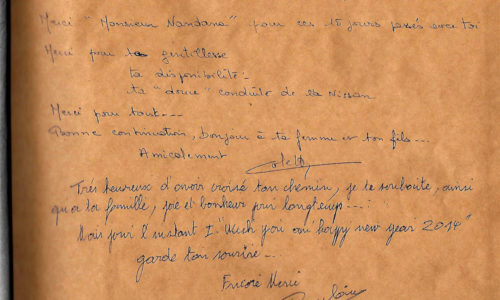 Merci "Monsieur Nandana" pour ces 15 jours passés avec toi
Merci pour ta gentillesse
ta disponibilité -
ta "douce" conduite de la Nissan
Merci pour tout ---
Bonne continuation, bonjour à ta femme et ton fils ---
Amicalement
Très heureux d'avoir croisé ton chemin, je te souhaite, ainsi
qu'à ta famille, joie et bonheur pour longtemps ---!
Mais pour l'instant I "Wich you an happy new year 2014"
garde ton sourire -
Encore Merci